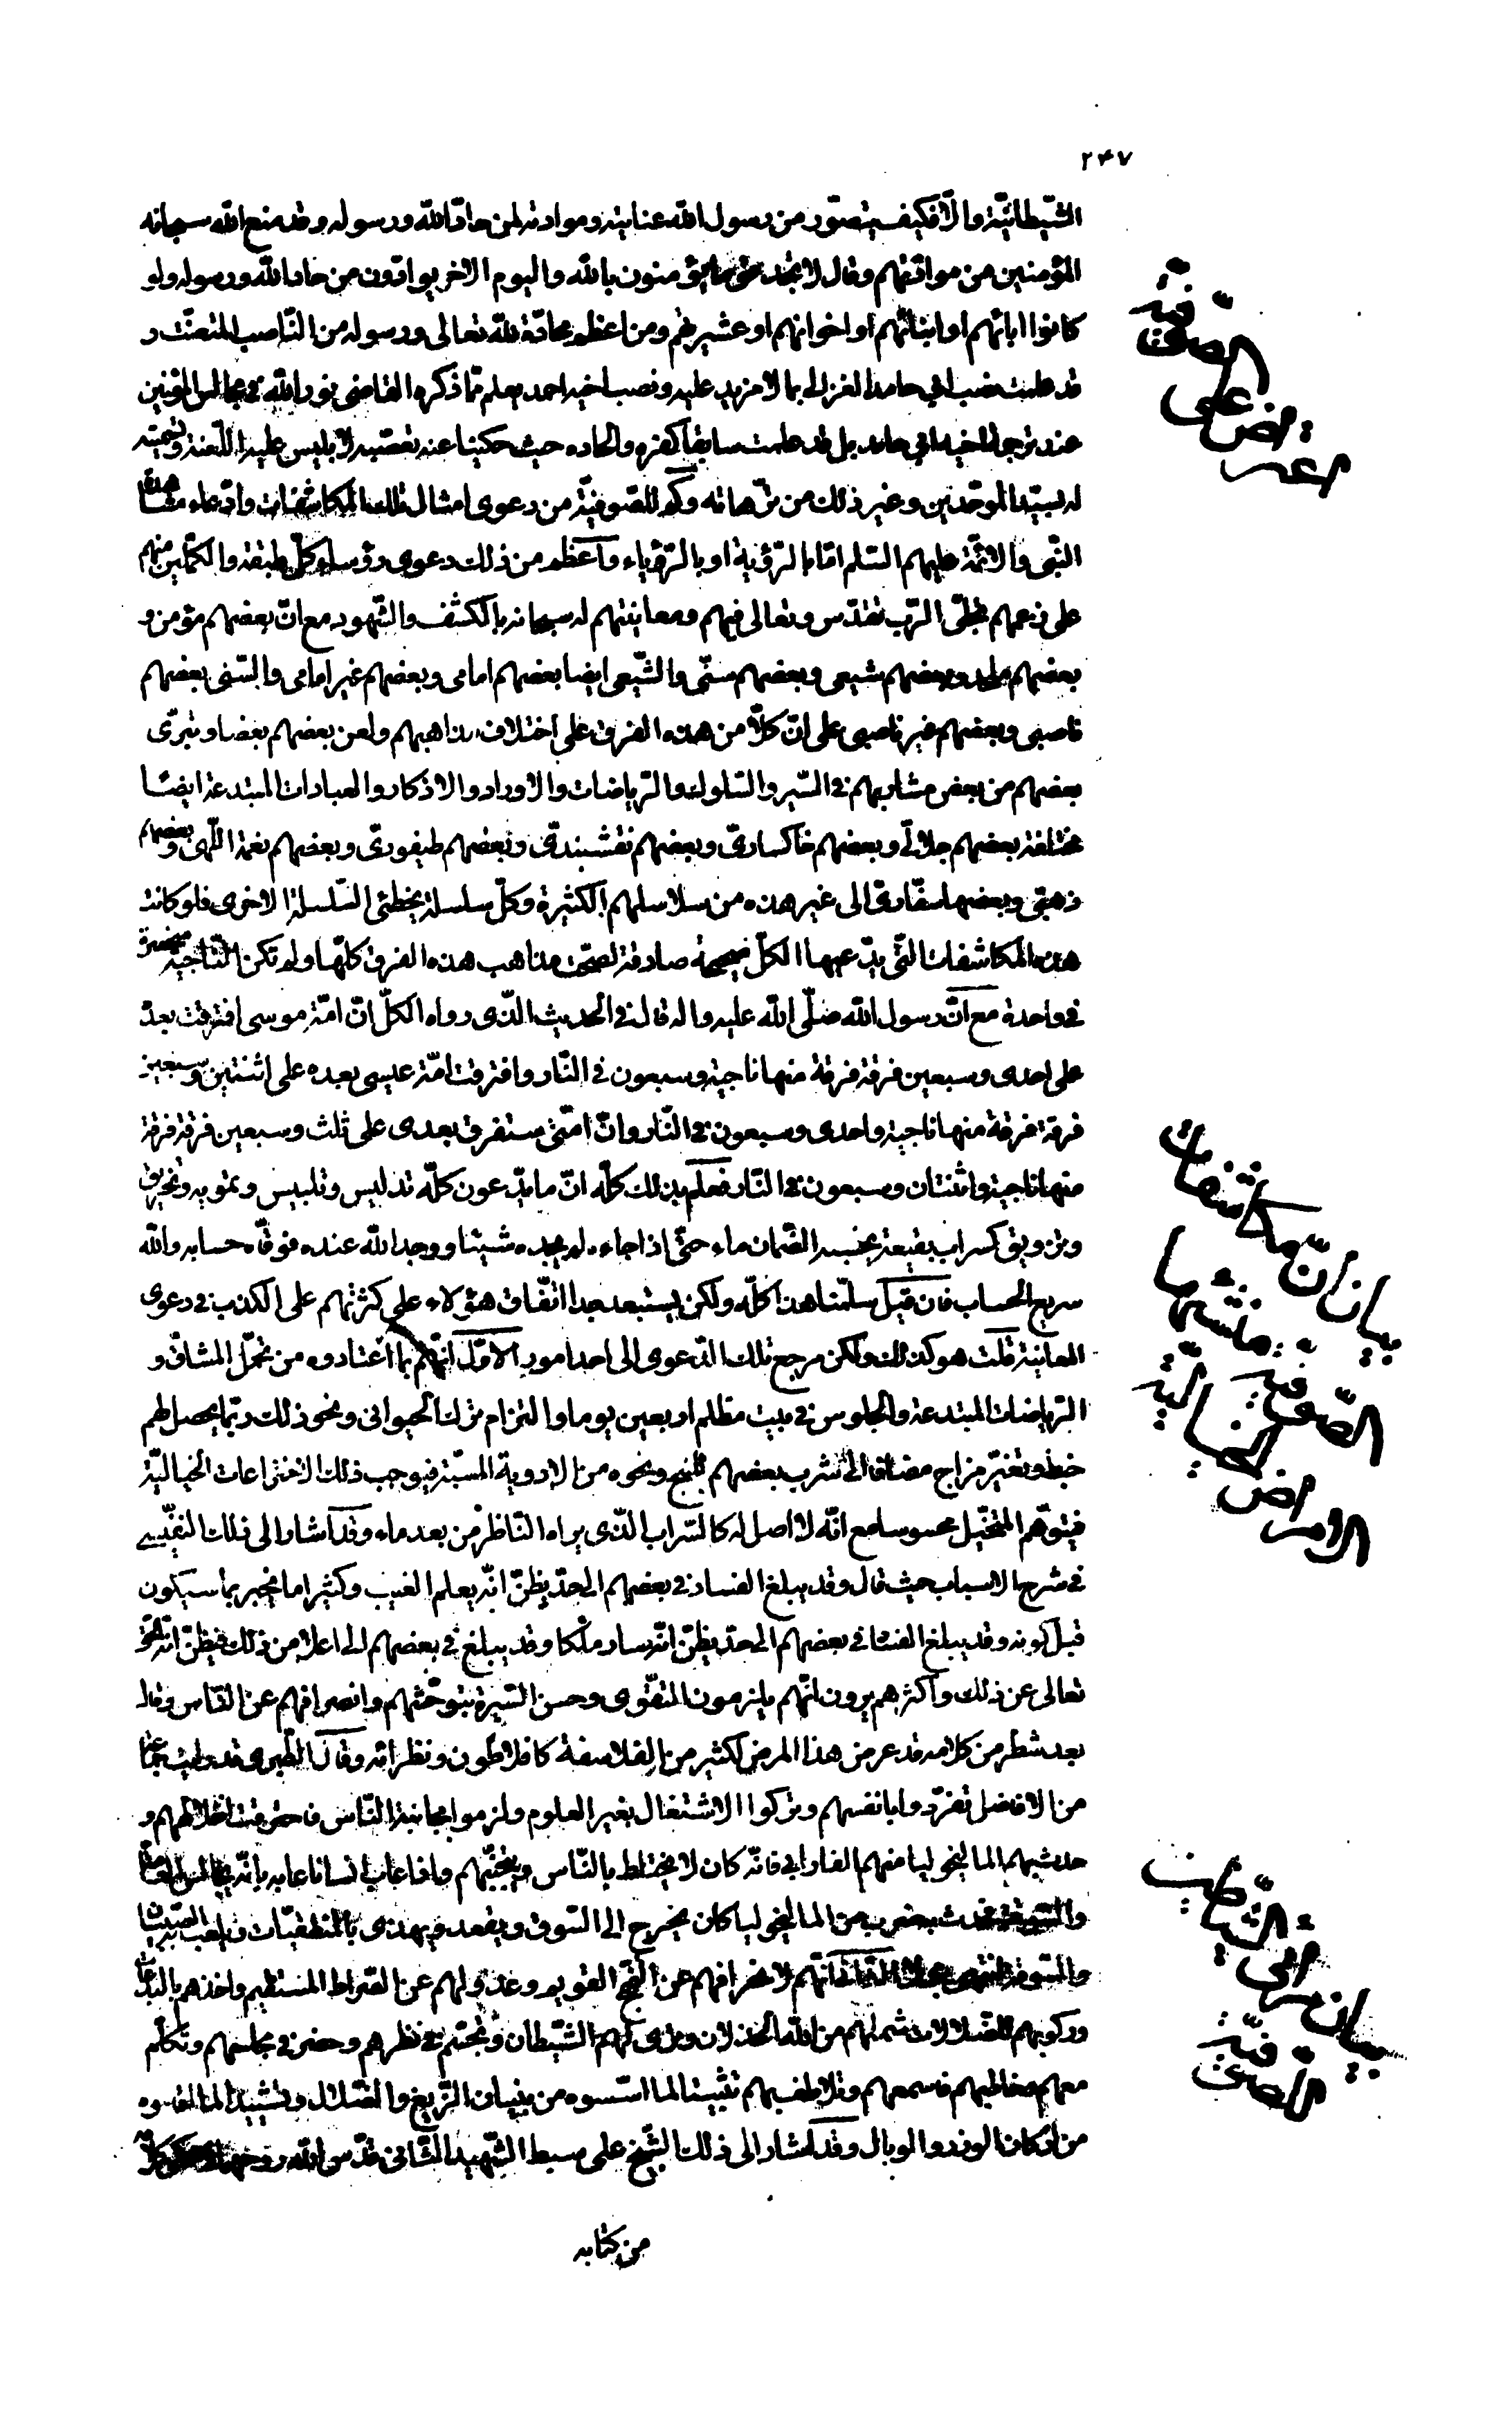 ٢٤٧
الشّيطانيّة والّا فكيف يتصوّر من رسول اللّه عنايته وموادته لمن حادّ اللّه ورسوله وقد منع اللّه سبحانه
المؤمنين من موادّتهم وقال لا تجد قوما يؤمنون باللّه واليوم الاخر يوادّون من حاد اللّه ورسوله ولو
كانوا ابائهم او ابنائهم او اخوانهم او عشيرتهم ومن اعظم محادّة للّه تعالى ورسوله من النّاصب المتعنّت و
قد علمت نصب ابي حامد الغزالى بما لا مزيد عليه ونصب اخيه احمد يعلم ممّا ذكره القاضى نور اللّه فى مجالس المؤمنين
عند ترجمة اخيه ابي حامد بل قد علمت سابقا كفره والحاده حيث حكينا عنه تعصّبه لابليس عليه اللّعنة وتسميته
له بسيّد الموحّدين وغير ذلك من ترّهاته وكم للصّوفيّة من دعوى امثال تلك المكاشفات وادّعاء مشاهدة
النّبى والائمّة عليهم السّلم امّا بالرّؤية او بالرّؤياء واعظم من ذلك دعوى رؤساء كلّ طبقة والكمّلين منهم
على زعمهم تجلّى الرّب تقدّس وتعالى فيهم ومعاينتهم له سبحانه بالكشف والشّهود مع انّ بعضهم مؤمن و
بعضهم ملحد وبعضهم شيعى وبعضهم سنّى والشّيعى ايضا بعضهم امامى وبعضهم غير امامى والسّنى بعضهم
ناصبى وبعضهم غير ناصبى على انّ كلّا من هذه الفرق على اختلاف مذاهبهم ولعن بعضهم بعضا وتبرّى
بعضهم من بعض مشاربهم فى السّير والسّلوك والرّياضات والاوراد والاذكار والعبادات المبتدعة ايضا
مختلفة بعضهم جلالىّ وبعضهم خاكسارىّ وبعضهم نقشبندىّ وبعضهم طيفورىّ وبعضهم نعمة اللّهى وبعضهم
ذهبىّ وبعضها سفّارىّ الى غير هذه من سلاسلهم الكثيرة وكلّ سلسلة يخطئ السّلسلة الاخرى فلو كانت
هذه المكاشفات الّتى يدّعيها الكلّ صحيحة صادقة لصحّت مذاهب هذه الفرق كلّها ولم تكن النّاجية منحصرة
فى واحدة مع انّ رسول اللّه صلّى اللّه عليه واله قال فى الحديث الّذى رواه الكلّ انّ امّة موسى افترقت بعده
على احدى وسبعين فرقة فرقة منها ناجية وسبعون فى النّار وافترقت امّة عيسى بعده على اثنتين وسبعين
فرقة فرقة منها ناجية واحدى وسبعون فى النّار وانّ امّتى ستفرق بعدى على ثلث وسبعين فرقة فرقة
منها ناجية واثنتان وسبعون فى النّار فعلم بذلك كلّه انّ ما يدّعون كلّه تدليس وتلبيس وتمويه وتخريق
وتزويق كسراب بقيعة يحسبه الظّمان ماء حتّى اذا جاءه لم يجده شيئا ووجد اللّه عنده فوفّاه حسابه واللّه
سريع الحساب فان قيل سلّمنا هذا كلّه ولكن يستبعد جدا اتّفاق هؤلاء على كثرتهم على الكذب فى دعوى
المعاينة قلت هو كذلك ولكن مرجع تلك الدّعوى الى احد امور الاوّل انّهم بما اعتادوه من تحمّل المشاقّ و
الرّياضات المبتدعة والجلوس فى بيت مظلم اربعين يوما والتزام ترك الحيوانى ونحو ذلك ربّما يحصل لهم
خبط وتغيّر مزاج مضافا الى شرب بعضهم للبنج ونحوه من الادوية المسبّتة فيوجب ذلك الاختراعات الخياليّة
فيتوهّم المتخيّل محسوسا مع انّه لا اصل له كالسّراب الّذى يراه النّاظر من بعد ماء وقد اشار الى ذلك النفيسى
فى شرح الاسباب حيث قال وقد يبلغ الفساد فى بعضهم الى حدّ يظنّ انّه يعلم الغيب وكثيرا ما يخبر بما سيكون
قبل كونه وقد يبلغ الفساد فى بعضهم الى حدّ يظنّ انّه صار ملكا وقد يبلغ فى بعضهم الى اعلا من ذلك فيظنّ انّه الحق
تعالى عن ذلك واكثرهم يرون انّهم يلزمون التقوى وحسن السّيرة بتوحّشهم وانصرافهم عن النّاس وقال
بعد شطر من كلامه قد عرض هذا المرض لكثير من الفلاسفة كافلاطون ونظرائه وقال الطّبرى قد رايت جماعة
من الافاضل تفرّدوا بانفسهم وتركوا الاشتغال بغير العلوم ولزموا مجانبة النّاس فاحترقت اخلاطهم و
حدث بهم الماليخوليا منهم الفارابى فانّه كان لا يختلط بالنّاس ويجتنبهم واذا عاب انسانا عابه بانّه يجالس العامة
والسّوقة فحدث به ضرب من الماليخوليا كان يخرج الى السّوق ويقعد ويهذى بالمنطقيّات فيلعب به الصّبيان
والسّوقة انتهى الثّانى انّهم لانحرافهم عن النّهج القويم وعدولهم عن الصّراط المستقيم واخذهم بالبدعات
وركوبهم للضّلالات شملهم من اللّه الخذلان وتراى لهم الشّيطان وتجسّم فى نظرهم وحضر فى مجلسهم وتكلّم
معهم وخاطبهم فاسمعهم وتلاطف بهم تثبيتا لما اسّسوه من بنيان الزّيغ والضّلال وتشييدا لما القوه
من اركان الوزر والوبال وقد اشار الى ذلك الشّيخ على سبط الشّهيد الثّانى قدّس اللّه روحهما
من كتابه
بيان انّ مكاشفات
الصّوفيّة منشاها
الامراض الخياليّة
بيان ترائى الشّياطين
للصوفيّة